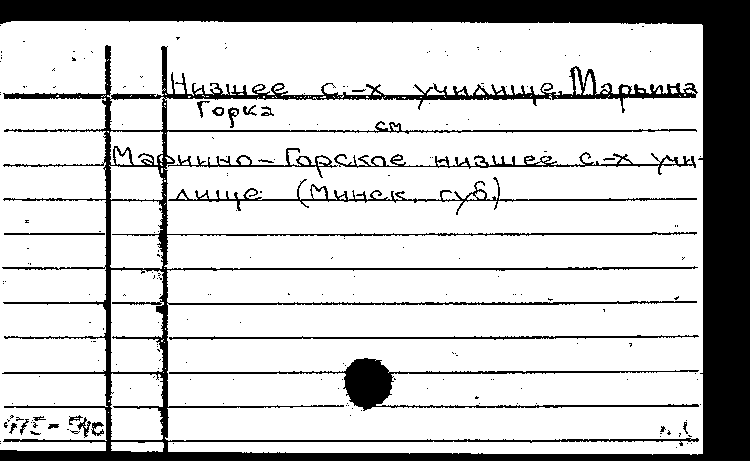 Низшее с.-х училище, Марьина
Горка
см.
Мариино-Горское низшее с.-х учи-
лище (Минск. губ.)